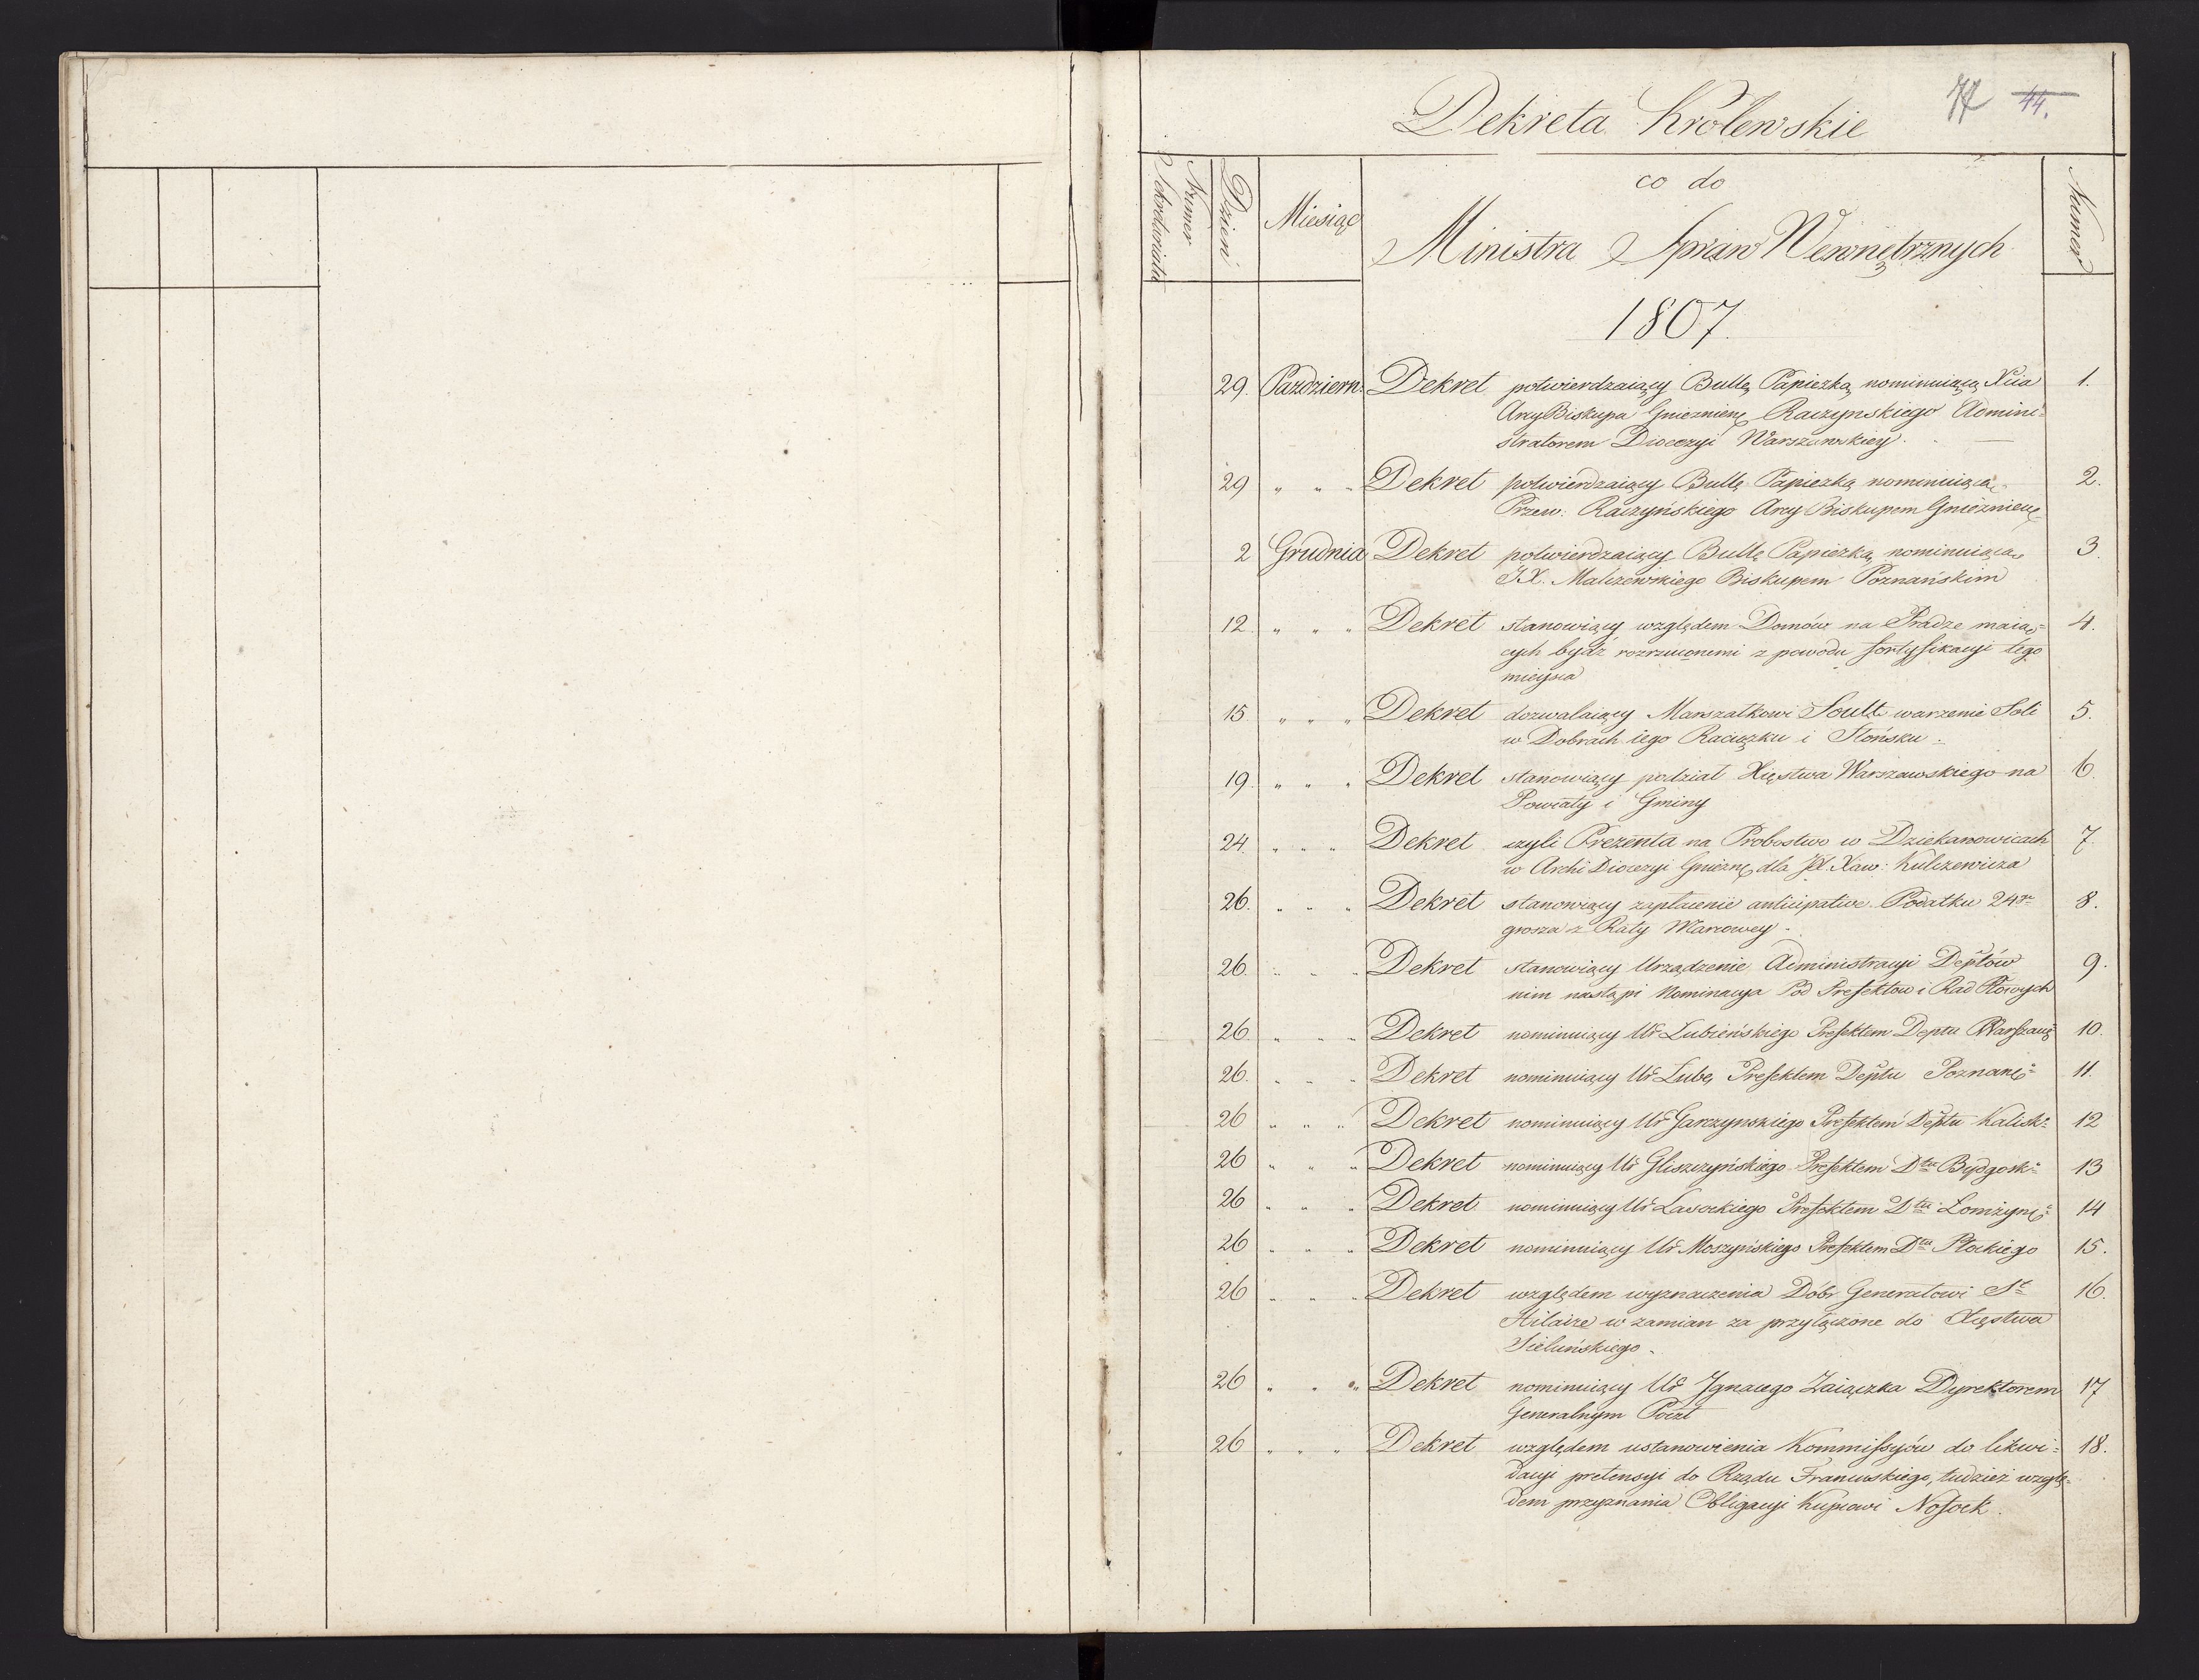 44.
Dekreta Krolewskie
Numer Sekretariatu
Dzień
Miesiąc
co do
Ministra Spraw Wewnętrznych
Numer
1807.
29. Październ: Dekret potwierdzaiący Bullę Papiezką nominuiącą Xcia 1.
ArcyBiskupa Gnieznień Raczynskiego Admini=
stratorem Dioecezyi Warszawskiey.
29 " " " Dekret potwierdzaiący Bullę Papiezką nominuiącą 2.
Przew: Raczyńskiego Arcy Biskupem Gnieźnień
2 Grudnia Dekret potwierdzaiący Bullę Papiezką nominuiącą 3.
JX. Malczewskiego Biskupem Poznańskim
12 " " " Dekret stanowiący względem Domów na Pradze maią= 4.
cych bydź rozrzuconemi z powodu fortyfikacyi tego
mieysca
15 " " " Dekret dozwalaiący Marszałkowi Soult warzenie Soli 5.
w Dobrach iego Raciążku i Słońsku.
19. " " " Dekret stanowiący podział Xięstwa Warszawskiego na 6.
Powiaty i Gminy
24 " " " Dekret czyli Prezenta na Probostwo w Dziekanowicach 7.
w Archi Diocezyi Gniezń dla JX Xaw: Kulczewicza
26. " " " Dekret stanowiący zapłacenie anticipative Podatku 24go 8.
grosza z Raty Marcowey.
26. " " " Dekret stanowiący Urządzenie Administracyi Deptów 9.
nim nastąpi Nominacya Pod Prefektow i Rad Płowych
26. " " " Dekret nominuiący Ur Łubieńskiego Prefektem Deptu Warszaws 10.
26. " " " Dekret nominuiący Ur Łubę Prefektem Deptu Poznańs: 11.
26 " " " Dekret nominuiący Ur Garczynskiego Prefektem Deptu Kalisk: 12
26 " " " Dekret nominuiący Ur Gliszczyńskiego Prefektem Dtu Bydgosk: 13
26 " " " Dekret nominuiący Ur Lasockiego Prefektem Dtu Łomżyńs: 14
26 " " " Dekret nominuiący Ur Moszyńskiego Prefektem Dtu Płockiego 15.
26 " " " Dekret względem wyznaczenia Dóbr Generałowi St 16.
Hilaire w zamian za przyłączone do Xięstwa
Sieluńskiego.
26 " " " Dekret nominuiący Ur Ignacego Zaiączka Dyrektorem 17
Generalnym Poczt
26 " " " Dekret względem ustanowienia Kommissyów do likwi= 18.
dacyi pretensyi do Rządu Francuskiego, tudzież wzglę=
dem przyznania Obligacyi Kupcowi Nossock.